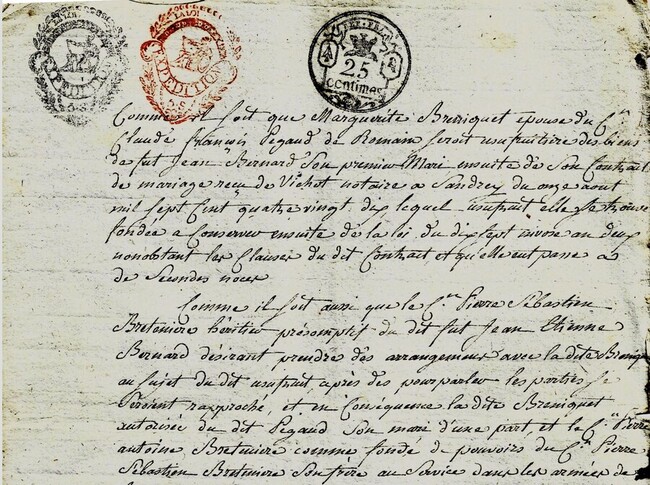 LA LOI
EXPEDITION
LA LOI
EXPEDITION
25
centimes
Comme il soit que Marguerite Breniquet epouse du C.en
Claude françois Pegaud de Romain seroit usufruitiere des biens
de fut Jean Bernard Son premier Mari ensuite de Son Contrat
de mariage recu de Vichot notaire a Sandrey du onze aout
mil Sept Cent quatre vingt dix lequel usufruit elle Se trouve
fondée a Conserver ensuite de la loi du dix Sept nivose an deux
nonobtant les Clauses du dit Contract et qu'elle eut passé a
de Secondes noces
Comme il soit aussi que le C.en Pierre Sébastien
Bretoniere héritier présomptif du dit fut Jean Etienne
Bernard désirant prendre des arrangemens avec la dite Breniquet
au Sujet du dit usufruit après des pourparler les parties Se
Seroient rapproché, et en Conséquence la dite Breniquet
autorisée du dit Pegaud Son mari d'une part et le C.en Pierre
antoine Bretiniere comme fondé de pouvoirs du C.en Pierre
Sébastien Bretiniere Son frère au Service dans les armées de